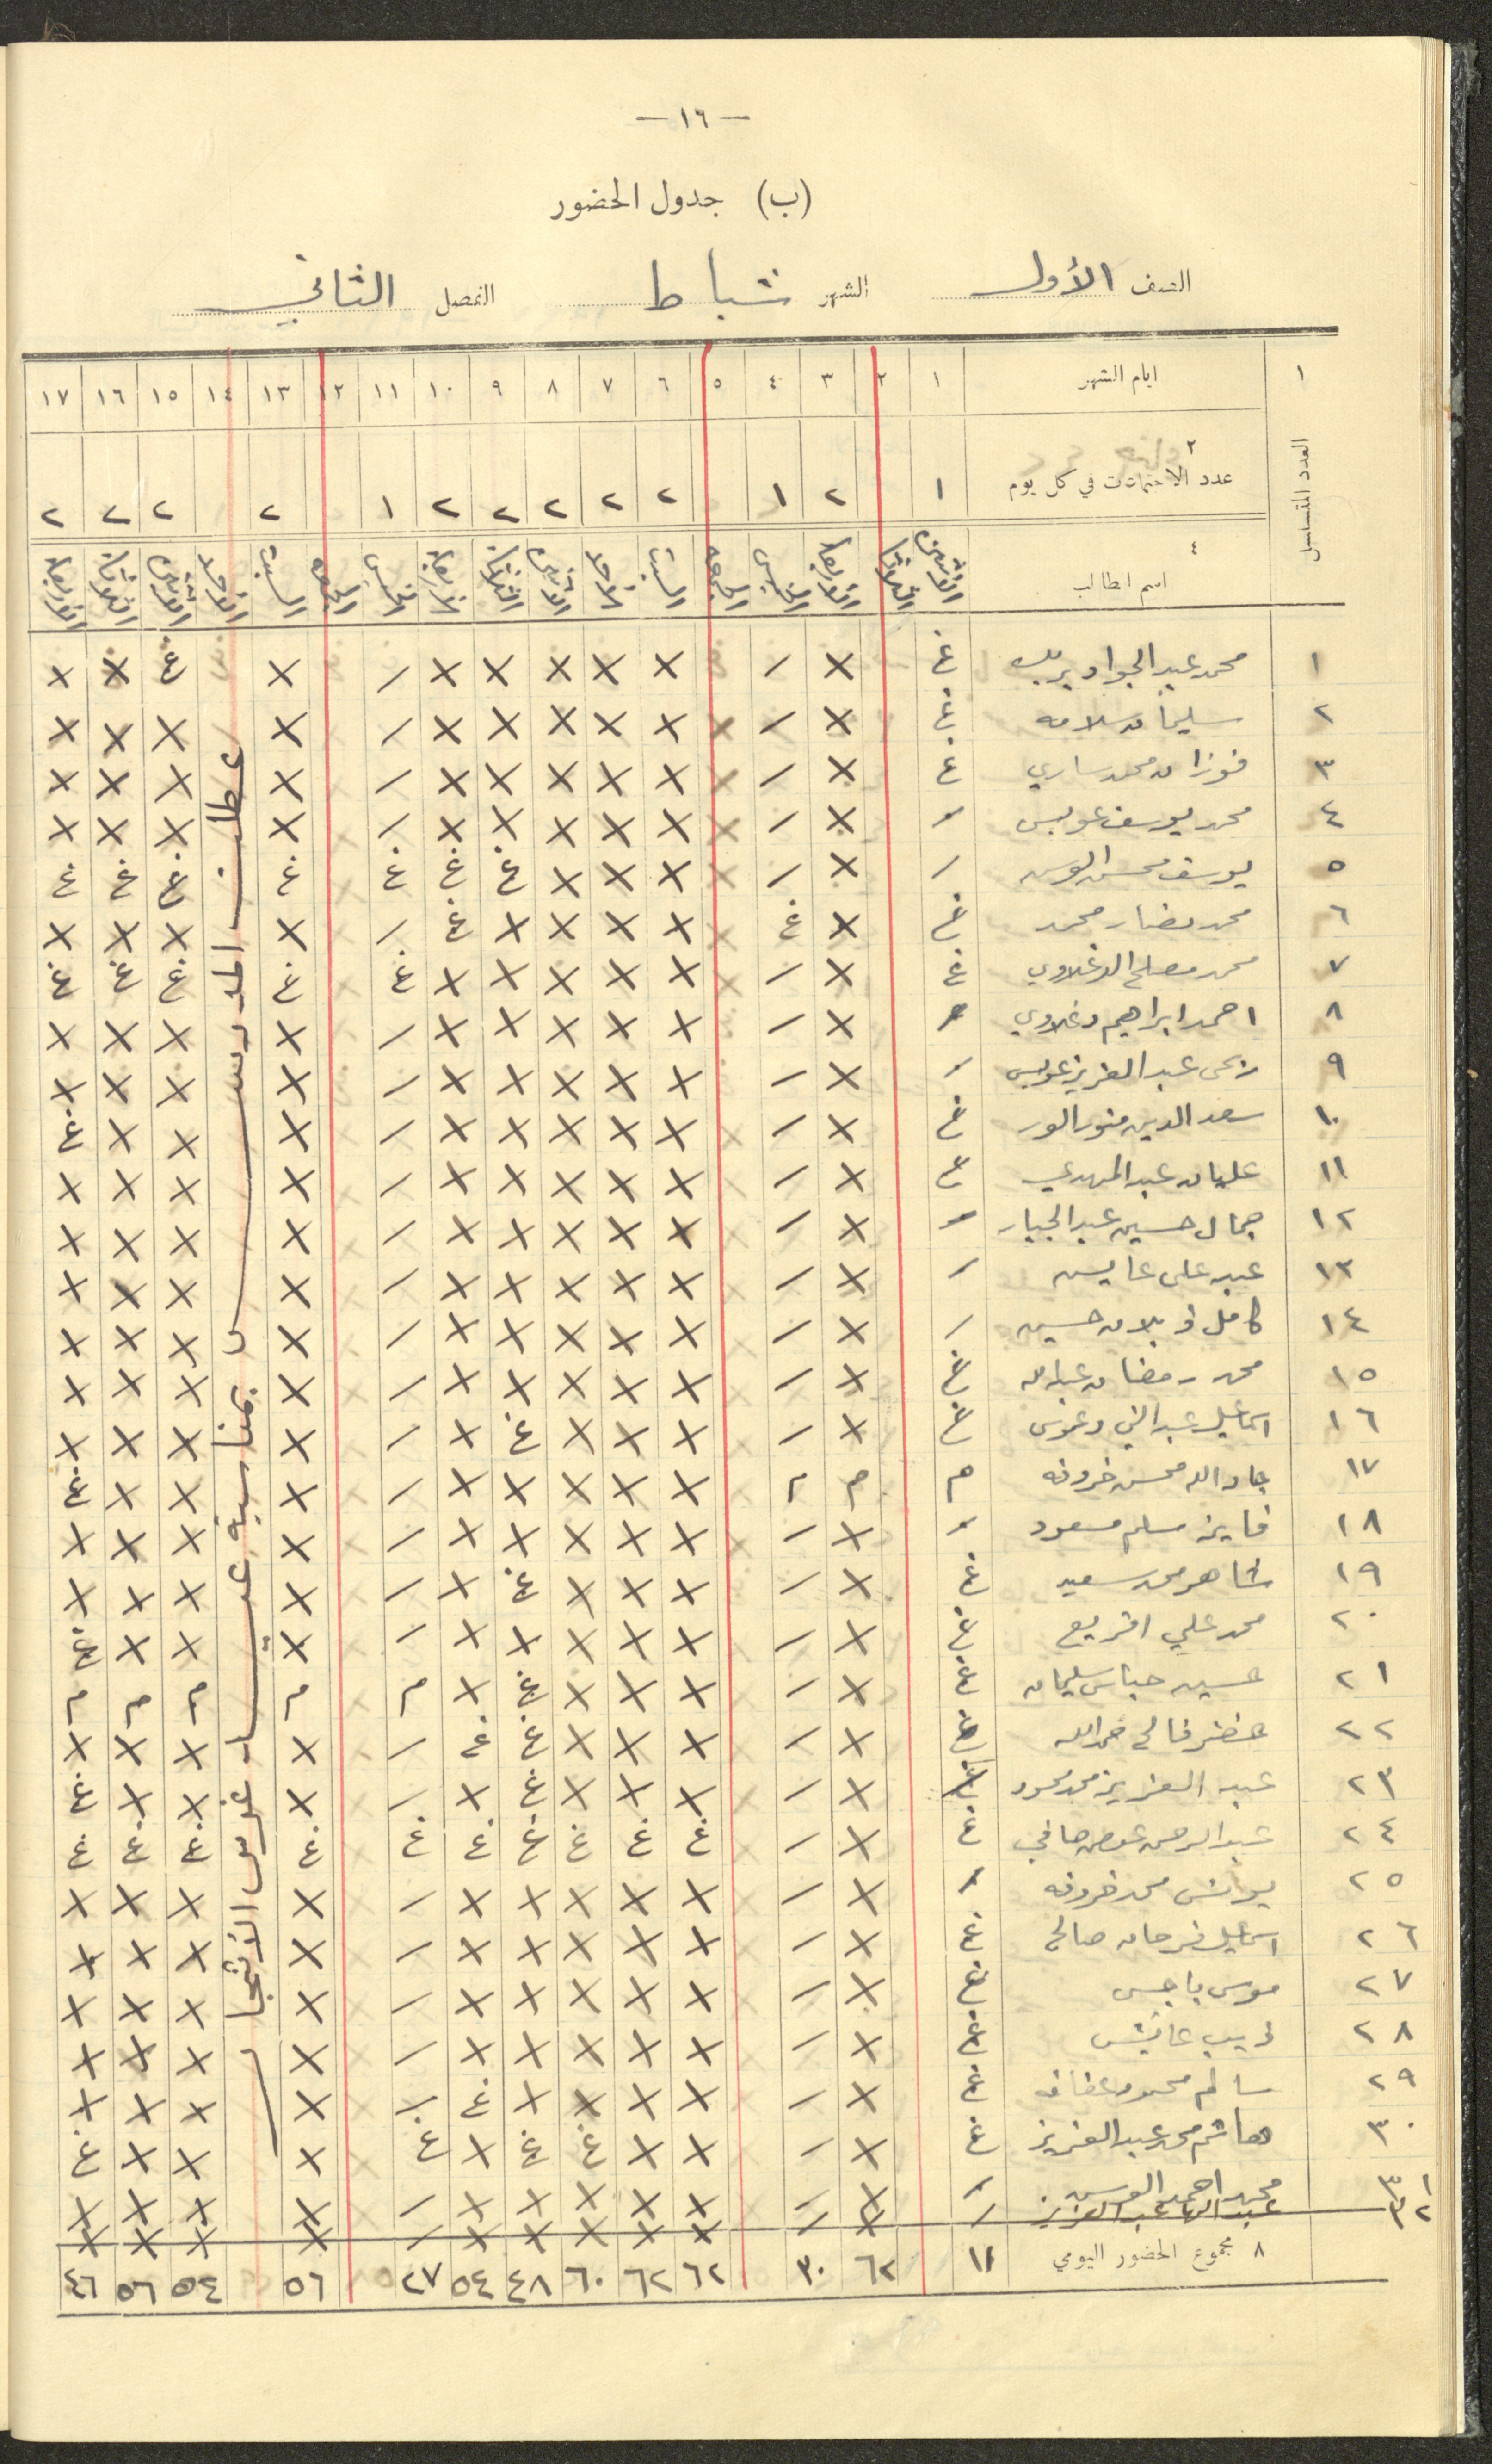 — ١٦ —
(ب) جدول الحضور
الصف الأول الشهر شباط الفصل الثاني
١ ايام الشهر ١ ٢ ٣ ٤ ٥ ٦ ٧ ٨ ٩ ١٠ ١١ ١٢ ١٣ ١٤ ١٥ ١٦ ١٧
العدد المتسلسل
٢ عدد الاجتماعات في كل يوم ١ ٢ ١ ٢ ٢ ٢ ٢ ٢ ١ ٢ ٢ ٢ ٢
٤ اسم الطالب الاثنين الثلاثاء الاربعاء الخميس الجمعه السبت الاحد الاثنين الثلاثاء الاربعاء الخميس الجمعه السبت الاحد الاثنين الثلاثاء الاربعاء
١ محمد عبد الجواد غ × / × × × × × / × غ × ×
٢ سليمان سلامه غ × / × × × × × / × × × ×
٣ فوزان محمد ساري غ × / × × × × × / × × × ×
٤ محمد يوسف عويس / × / × × × × × / × × × ×
٥ يوسف محسن / × / × × × غ غ غ غ غ غ غ
٦ محمد محمد غ × غ × × × × غ / × × × ×
٧ محمد مصلح الدغلاوي غ × / × × × × × غ غ غ غ غ
٨ احمد ابراهيم دغلاوي / × / × × × × × / × × × ×
٩ ربحي عبد العزيز عويس / × / × × × × × / × × × ×
١٠ سعد الدين غ × / × × × × × / × × × غ
١١ عليان عبد المهدي غ × / × × × × × / × × × ×
١٢ جمال حسين عبد الجبار / × / × × × × × / × × × ×
١٣ عبد علي عايش / × / × × × × × / × × × ×
١٤ كامل ذبلان حسين / × / × × × × × / × × × ×
١٥ محمد رمضان عبدالله غ × / × × × × × / × × × ×
١٦ اسماعيل عبد النبي غ × / × × × غ × / × × × ×
١٧ جاد الله محسن خروفه م م م × × × × × / × × × غ
١٨ فايز سلم مسعود / × / × × × × × / × × × ×
١٩ شاهر محمد سعيد غ × / × × × غ × / × × × ×
٢٠ محمد علي اقريع غ × / × × × × × / × × × غ
٢١ حسين عباس سليمان غ × / × × × غ × م م م م م
٢٢ خضر فالح حمدالله غ × / × × × غ غ / × × × ×
٢٣ عبد العزيز محمد محمود غ × / × × × غ × / × × × غ
٢٤ عبد الرحمن عوض صافي غ × / غ غ غ غ غ غ غ غ غ غ
٢٥ يونس محمد خروفه / × / × × × × × / × × × ×
٢٦ اسماعيل فرحان صالح غ × / × × × × × / × × × ×
٢٧ موسى باجس غ × / × × × × × / × × × ×
٢٨ ذيب عايش غ × / × × × × × / × × × ×
٢٩ سالم محمود غ × / × × × × غ / × × × ×
٣٠ هاشم محمد عبد العزيز غ × / × × غ غ × غ × × × غ
٣١ محمد احمد / × / × × × × × / × × × ×
٣٢ عبد العزيز / × / × × × × × / × × × ×
عطلت المدرسه بمناسبة عيد غرس الاشجار
٨ مجموع الحضور اليومي ١١ ٦٢ ٣٠ ٦٢ ٦٢ ٦٠ ٤٨ ٥٤ ٢٧ ٥٦ ٥٤ ٥٦ ٤٦